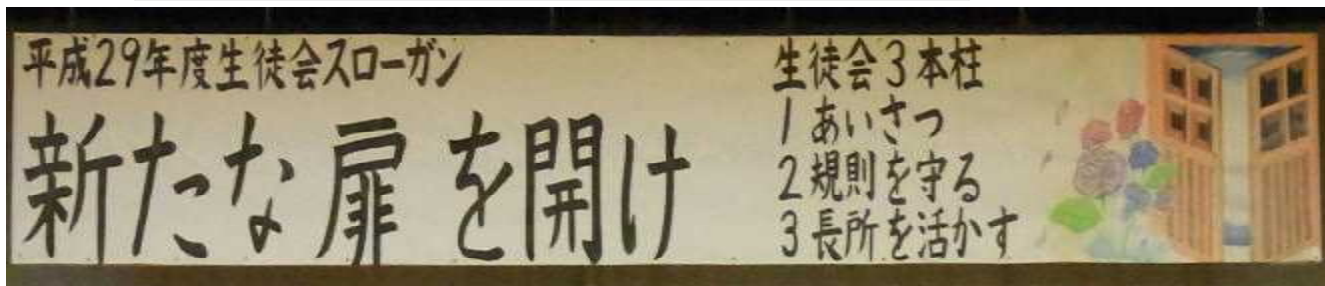 平成29年度生徒会スローガン
新たな扉を開け
生徒会3本柱
1 あいさつ
2 規則を守る
3 長所を活かす